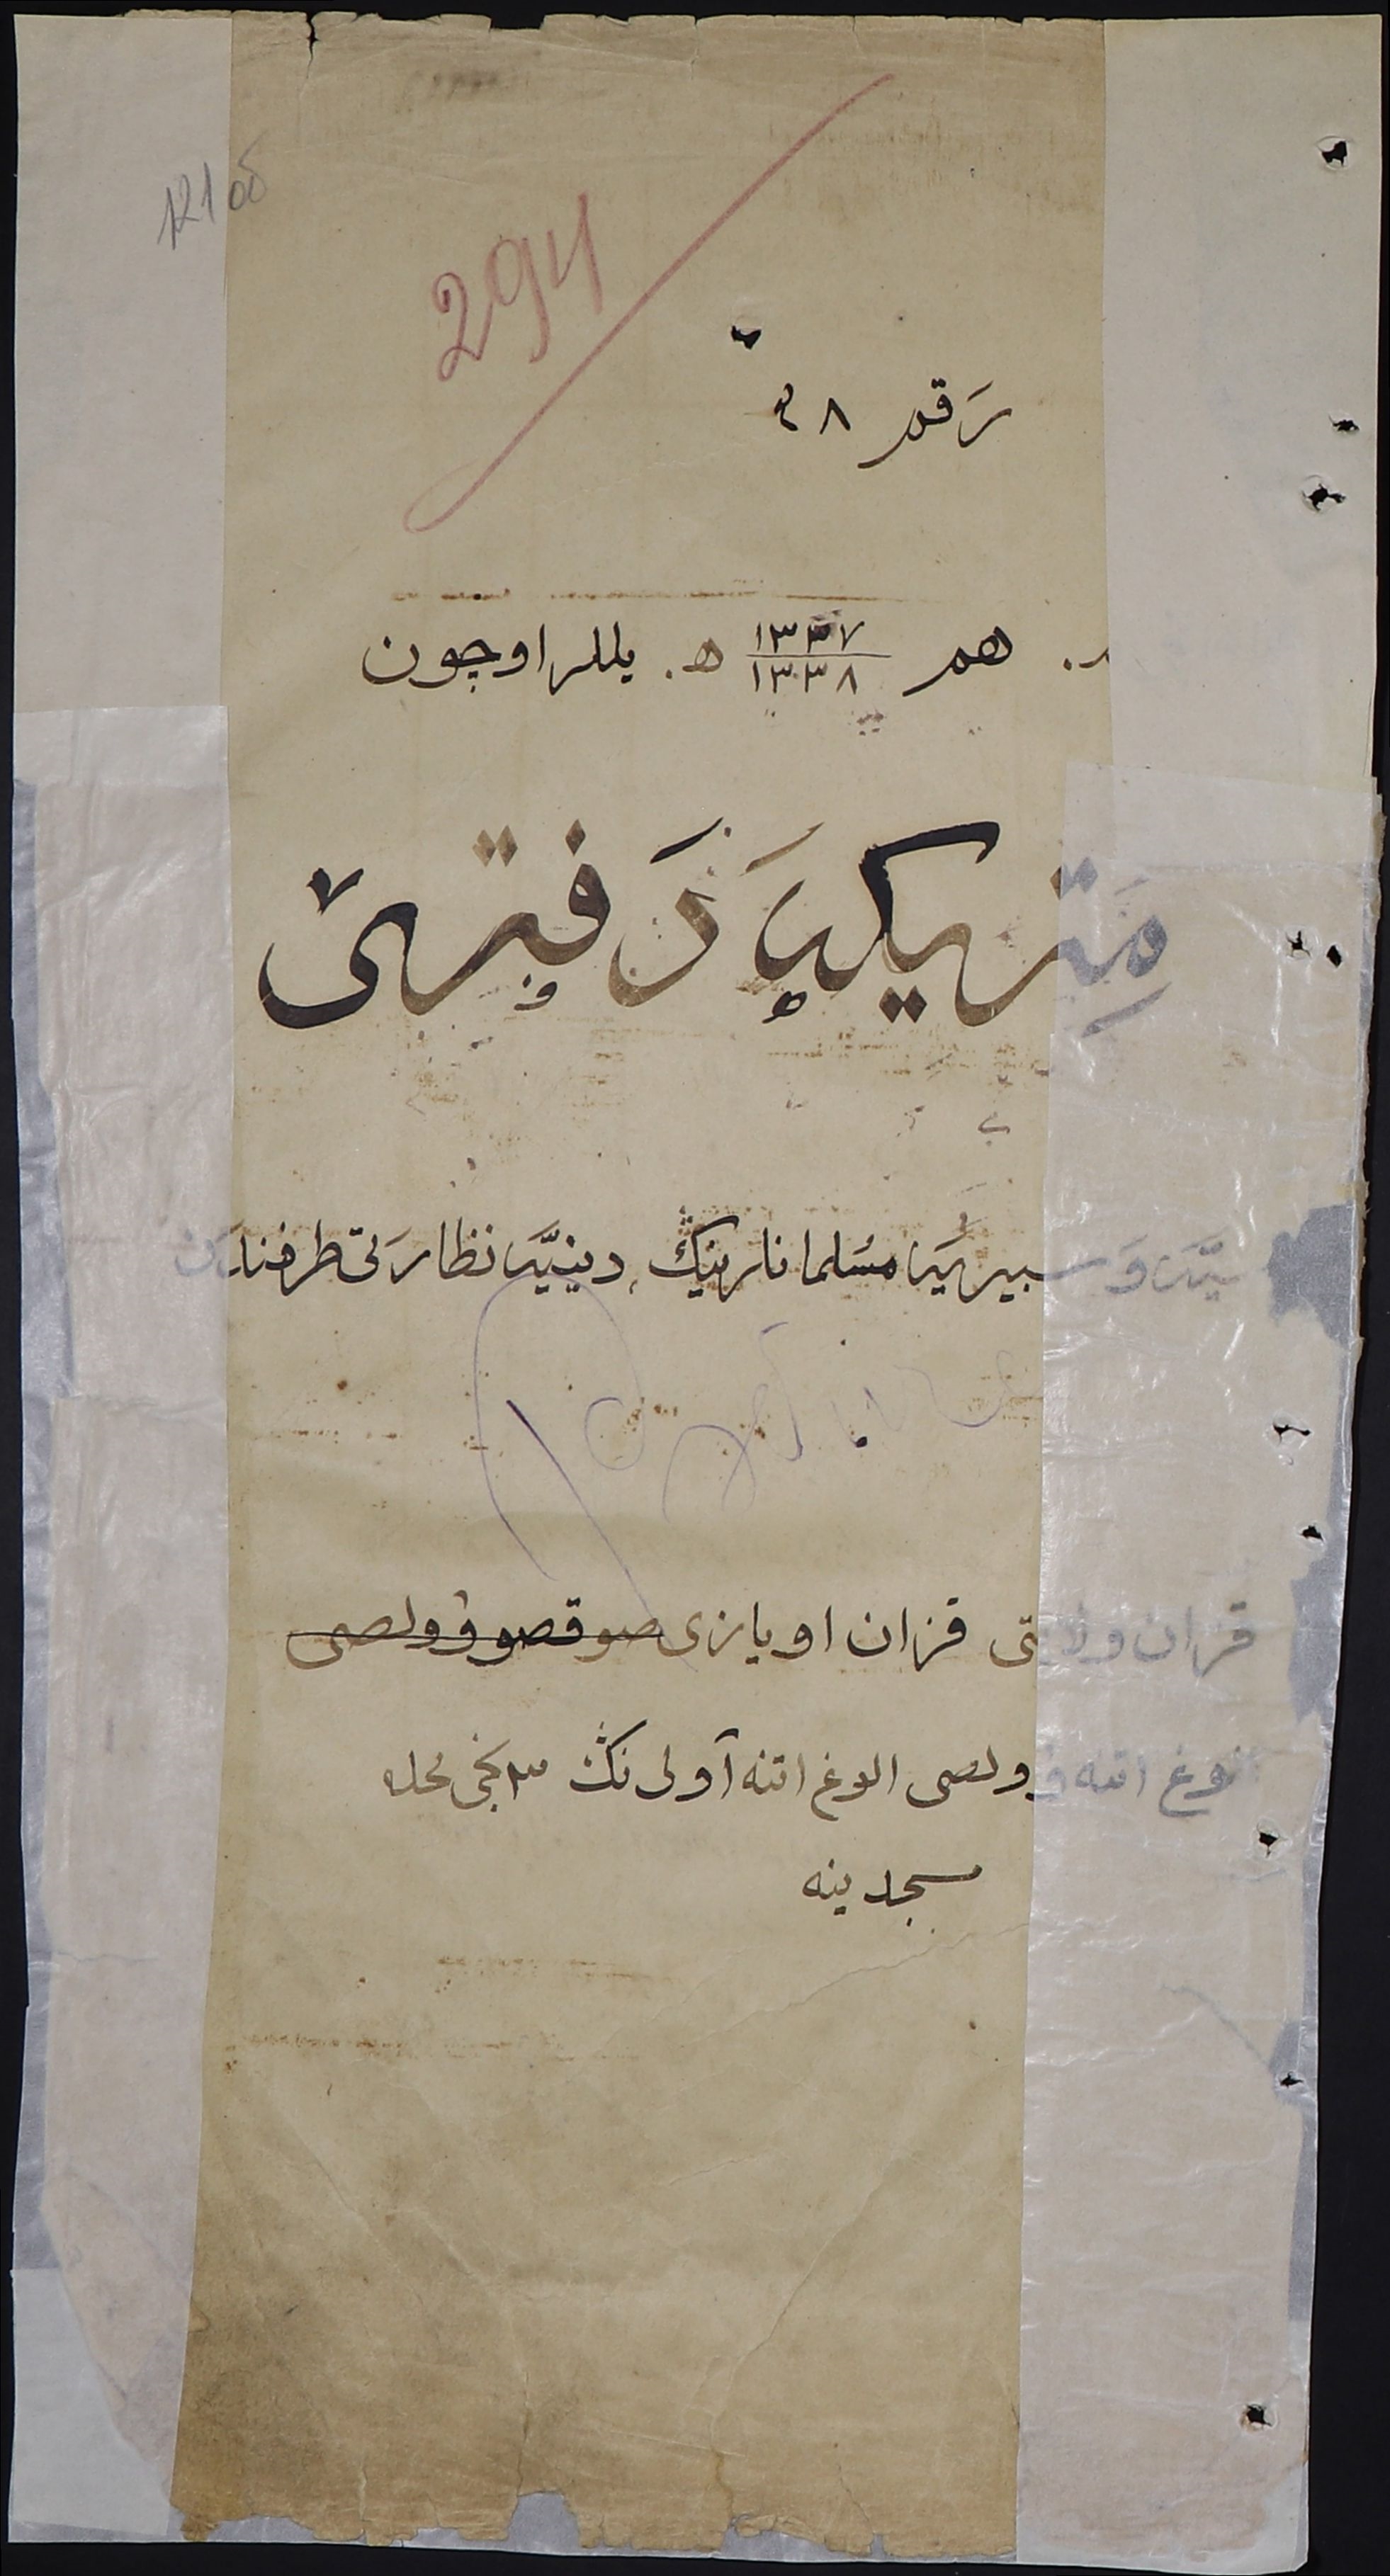 121 об
294
رَقم ٣٨
هم ١٣٣٧
١٣٣٨ ه. يللر اوچون
مِتريكيَه دَفترىٔ
سيبيريَه مسُلمانلرنيڭ دينيَّه نظارَتى طرفندن
قزان ولايتى قزان اويازى صوقصو ولصى
الوغ اتنه ولصى الوغ اتنه آولى نڭ ٣ نچى محله
مسجدينه